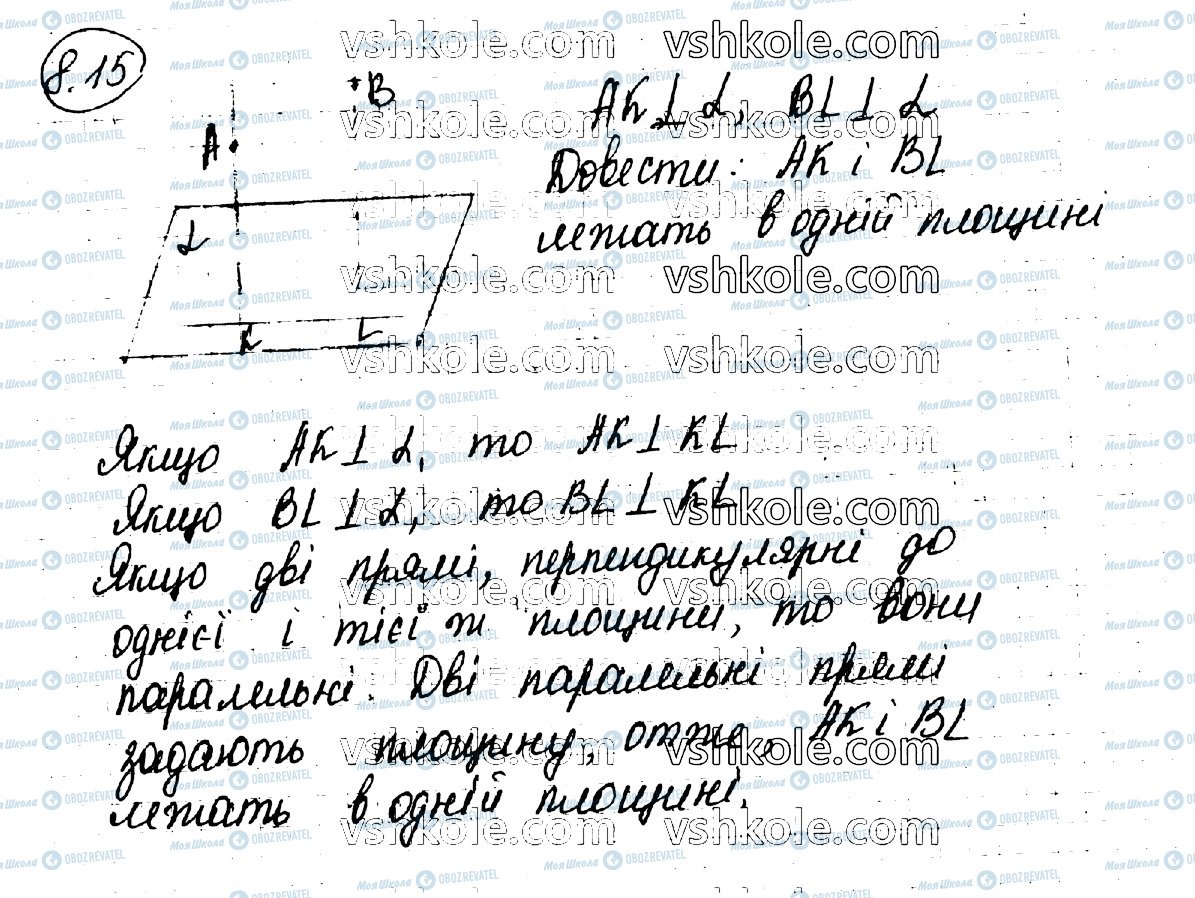 8.15
B
A
α
K L
AK ⊥ α, BL ⊥ α
Довести: AK і BL
лежать в одній площині
Якщо AK ⊥ α, то AK ⊥ KL
Якщо BL ⊥ α, то BL ⊥ KL
Якщо дві прямі, перпендикулярні до
однієї і тієї ж площини, то вони
паралельні. Дві паралельні прямі
задають площину, отже, AK і BL
лежать в одній площині.
vshkole.com
МояШкола OBOZREVATEL